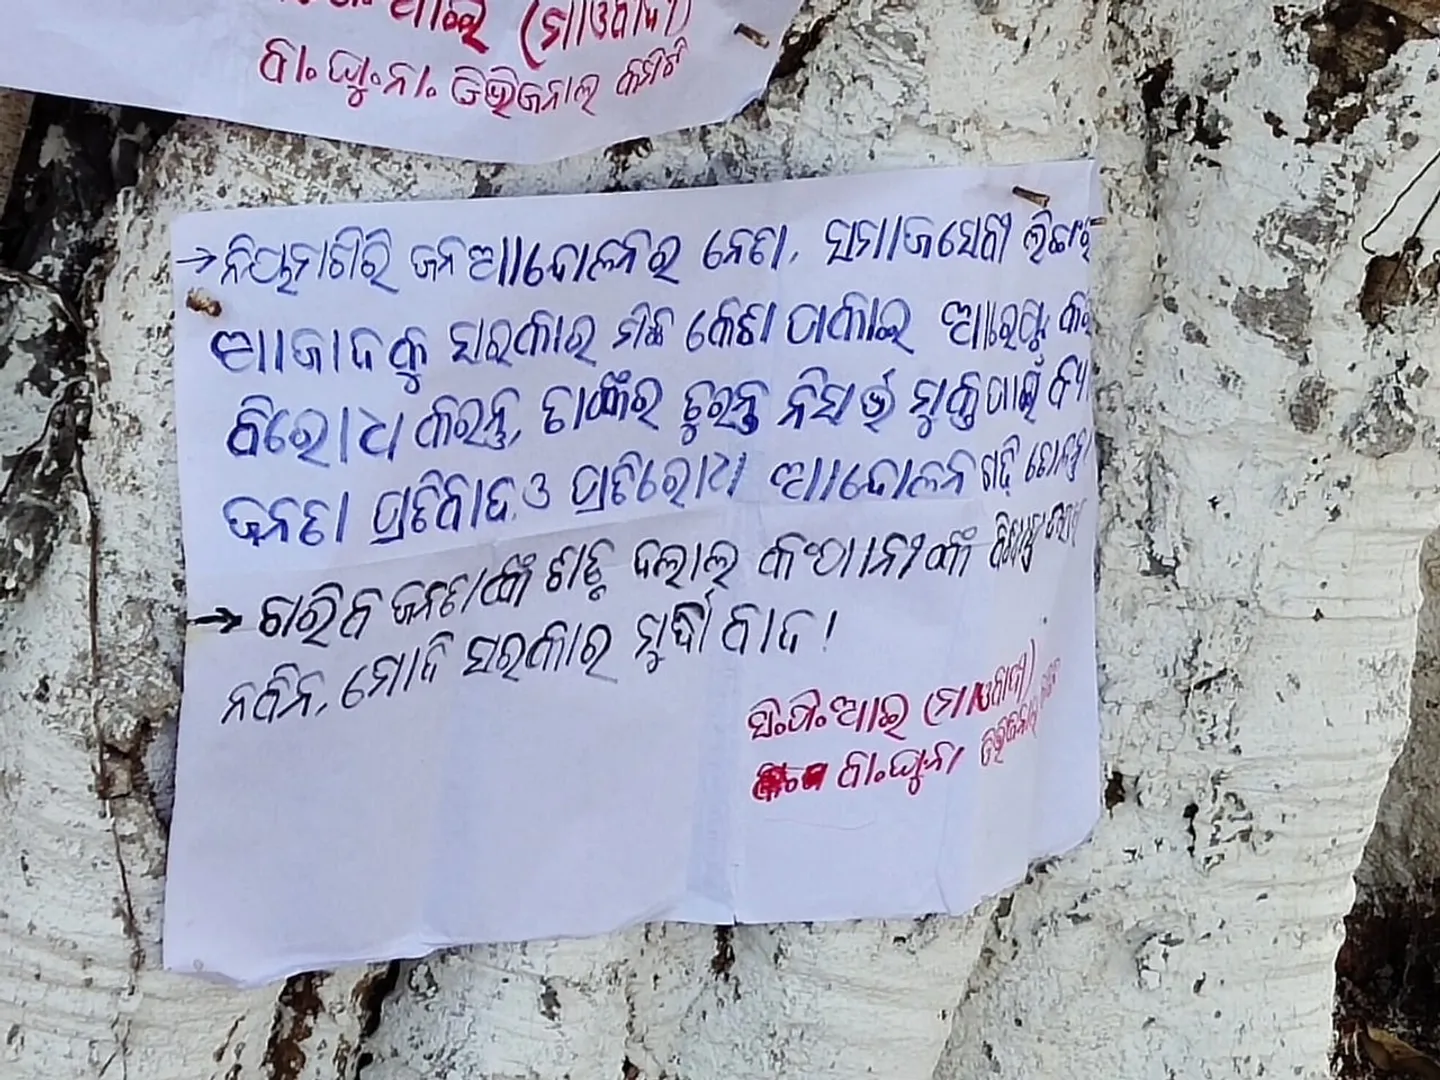 ଆଇ (ମାଓବାଦୀ)
ବା.ଘୁ.ନା. ଡିଭିଜନାଲ କମିଟି
→ ନିୟମାଗିରି ଜନଆନ୍ଦୋଳନର ନେତା, ସମାଜସେବୀ ଲିଙ୍ଗରାଜ
ଆଜାଦକୁ ସରକାର ମିଛ କେଶ ଦାକାଇ ଆରେଷ୍ଟ
ବିରୋଧ କରନ୍ତୁ, ତାଙ୍କର ତୁରନ୍ତ ନିସର୍ତ୍ତ ମୁକ୍ତି ପାଇଁ
ଜନତା ପ୍ରତିବାଦ ଓ ପ୍ରତିରୋଧ ଆନ୍ଦୋଳନ ଗଢ଼ି ତୋଳନ୍ତୁ
→ ଗରିବ ଜନତାଙ୍କ ଶତ୍ରୁ ଦଲାଲ
ନବିନ, ମୋଦି ସରକାର ମୁର୍ଦ୍ଦାବାଦ!
ସି.ପି.ଆଇ (ମାଓବାଦୀ)
ବା.ଘୁ.ନା ଡିଭିଜନାଲ